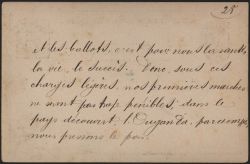 25
et des ballots, c'est pour nous la santé
la vie, le succès. Donc, sous ces
charges légères, nos premières marches
ne sont pas trop pénibles dans le
pays découvert, l'Ouganda, par exemple,
nous prenons le pas